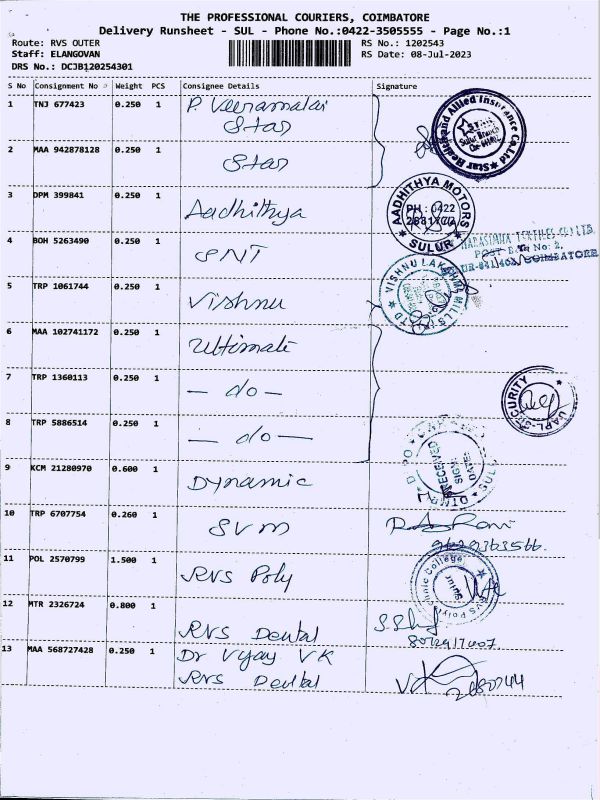 THE PROFESSIONAL COURIERS, COIMBATORE
Delivery Runsheet - SUL - Phone No.:0422-3505555 - Page No.:1
Route: RVS OUTER
RS No.: 1202543
Staff: ELANGOVAN
RS Date: 08-Jul-2023
DRS No.: DCJB120254301
S No Consignment No Weight PCS Consignee Details Signature
1 TNJ 677423 0.250 1 P. Veeramalai
Star
2 MAA 942878128 0.250 1 Star
Star Health and Allied Insurance Co.Ltd
STAR
Sulur Branch
3 DPM 399841 0.250 1 Aadhithya
AADHITHYA MOTORS
PH : 0422
SULUR
4 BOH 5263490 0.250 1 SNT
5 TRP 1061744 0.250 1 Vishnu
VISHNU LAKSHMI MILLS
6 MAA 102741172 0.250 1 Ultimate
7 TRP 1360113 0.250 1 - do -
UAPL-SECURITY
8 TRP 5886514 0.250 1 - do -
9 KCM 21280970 0.600 1 Dynamic
RECEIVED
SIGN:
DATE:
10 TRP 6707754 0.260 1 SVM
11 POL 2570799 1.500 1 RVS Poly
RVS Polytechnic College
Sulur
12 MTR 2326724 0.800 1 RVS Dental
13 MAA 568727428 0.250 1 Dr Vijay VK
RVS Dental